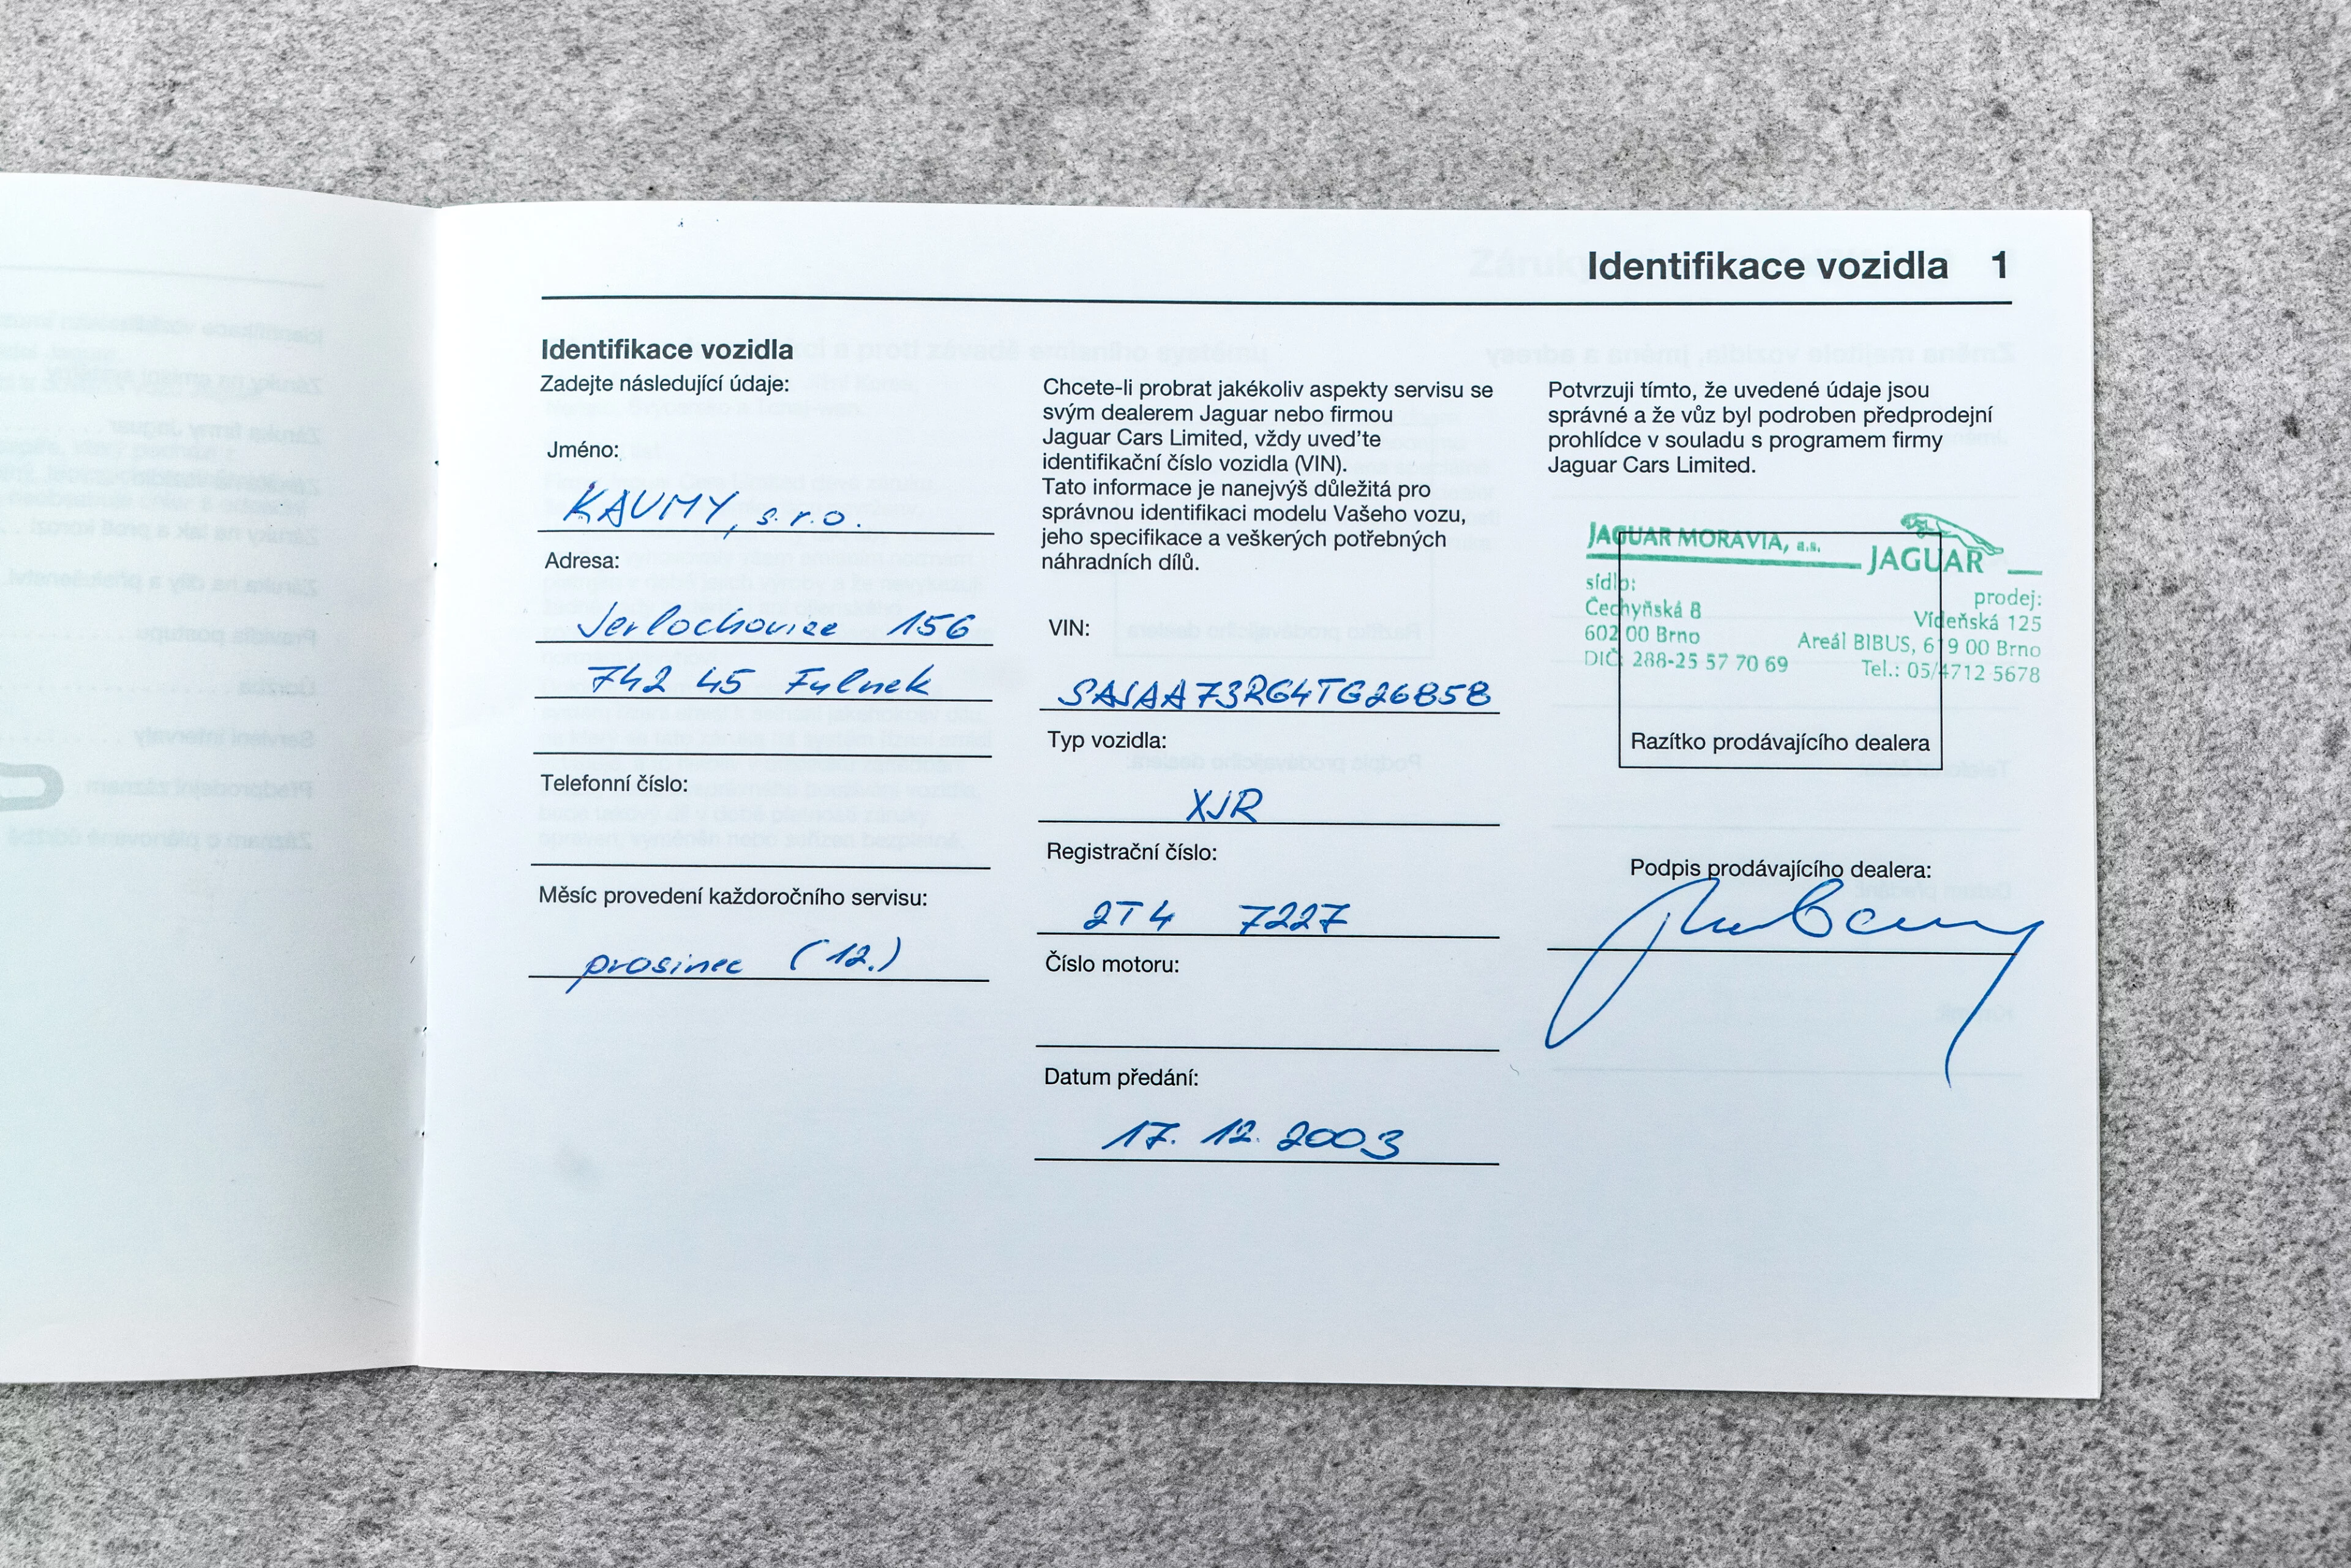 Identifikace vozidla 1
Identifikace vozidla
Zadejte následující údaje:
Jméno:
KAUMY, s.r.o.
Adresa:
Jerlochovice 156
742 45 Fulnek
Telefonní číslo:
Měsíc provedení každoročního servisu:
prosinec (12.)
Chcete-li probrat jakékoliv aspekty servisu se
svým dealerem Jaguar nebo firmou
Jaguar Cars Limited, vždy uveďte
identifikační číslo vozidla (VIN).
Tato informace je nanejvýš důležitá pro
správnou identifikaci modelu Vašeho vozu,
jeho specifikace a veškerých potřebných
náhradních dílů.
VIN:
SAJAA73RG4TG26858
Typ vozidla:
XJR
Registrační číslo:
2T4 7227
Číslo motoru:
Datum předání:
17. 12. 2003
Potvrzuji tímto, že uvedené údaje jsou
správné a že vůz byl podroben předprodejní
prohlídce v souladu s programem firmy
Jaguar Cars Limited.
JAGUAR MORAVIA, a.s.
JAGUAR
sídlo:
Čechyňská 8
602 00 Brno
DIČ: 288-25 57 70 69
prodej:
Vídeňská 125
Areál BIBUS, 619 00 Brno
Tel.: 05/4712 5678
Razítko prodávajícího dealera
Podpis prodávajícího dealera: